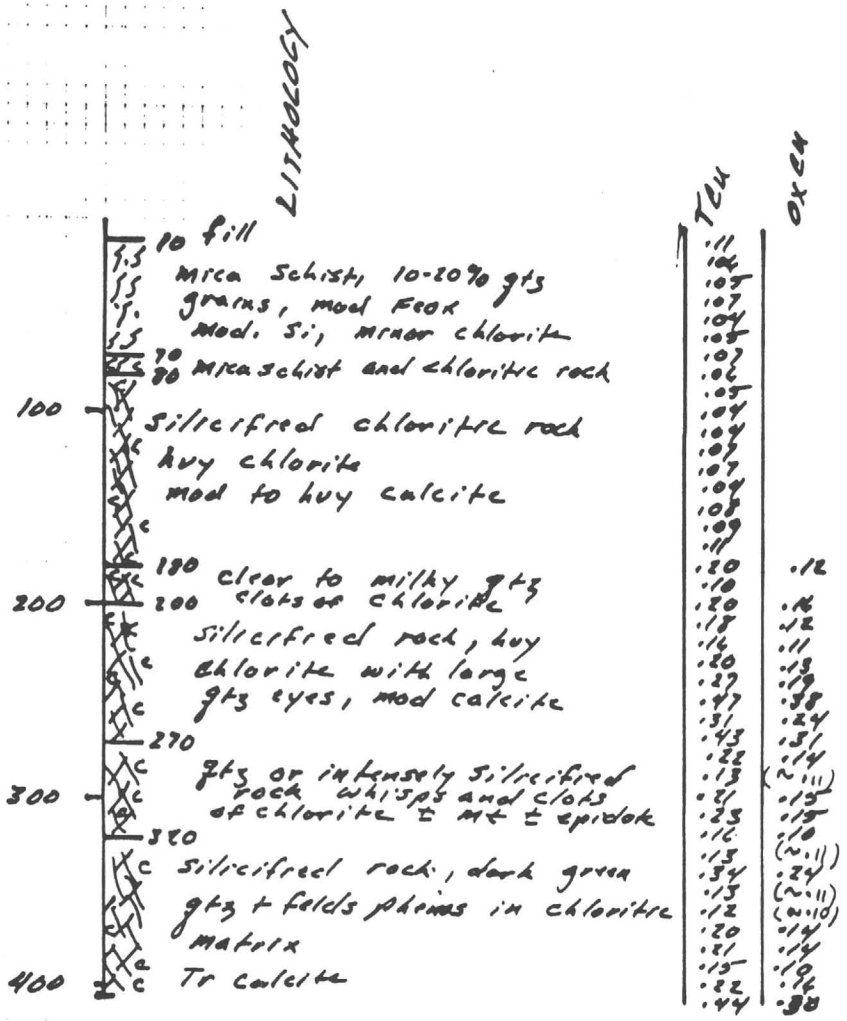 LITHOLOGY
TCu
OxCu
10 fill
mica schist, 10-20% qtz
grains, mod Feox
mod. Si, minor chlorite
70
80 mica schist and chloritic rock
100
silicified chloritic rock
hvy chlorite
mod to hvy calcite
180 clear to milky qtz
200 200 clots of chlorite
silicified rock, hvy
chlorite with large
qtz eyes, mod calcite
270
qtz or intensely silicified
300 rock whisps and clots
of chlorite ± mt ± epidote
320
silicified rock, dark green
qtz + felds phenos in chloritic
matrix
400 Tr calcite
.11
.04
.07
.04
.07
.04
.04
.07
.07
.04
.08
.09
.11
.20 .12
.10
.20
.18 .12
.16 .11
.20 .13
.27 .19
.47 .38
.31 .24
.43 .31
.22 .14
.13 (~.11)
.21 .15
.23 .15
.16 .10
.13 (~.11)
.34 .24
.13 (~.11)
.12 (~.10)
.20 .14
.21 .14
.15 .10
.22 .16
.44